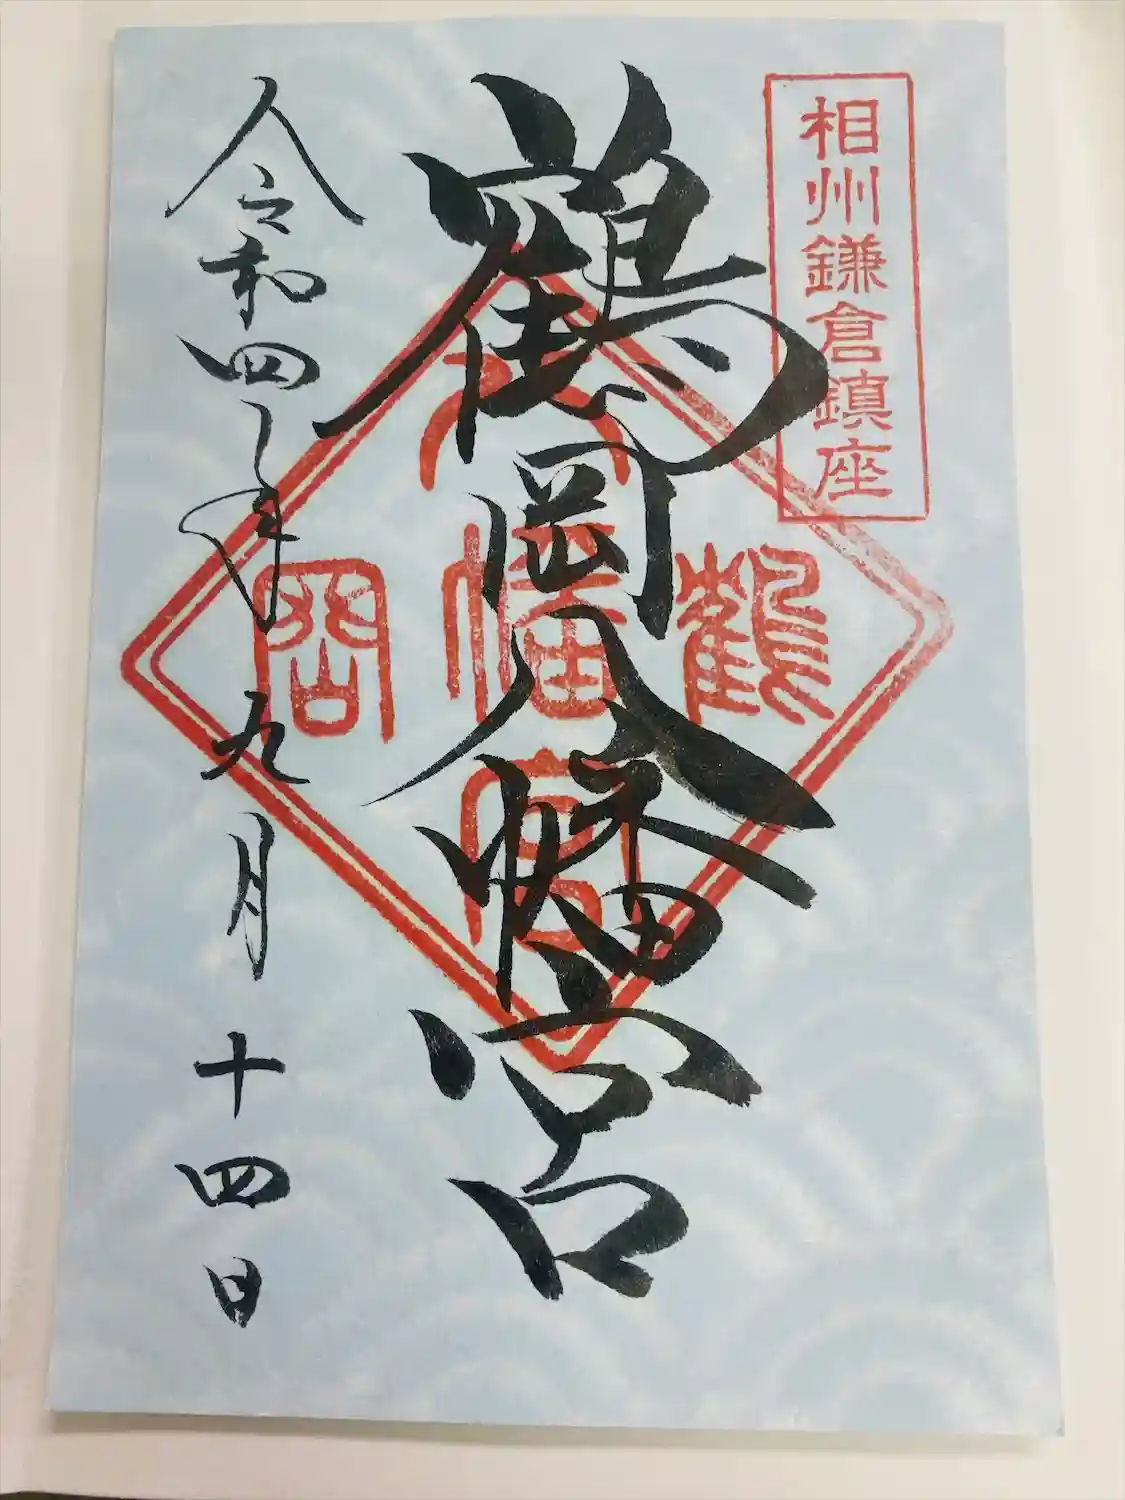 相州鎌倉鎮座
鶴岡八幡宮
鶴
八
幡
宮
岡
令和四年九月十四日